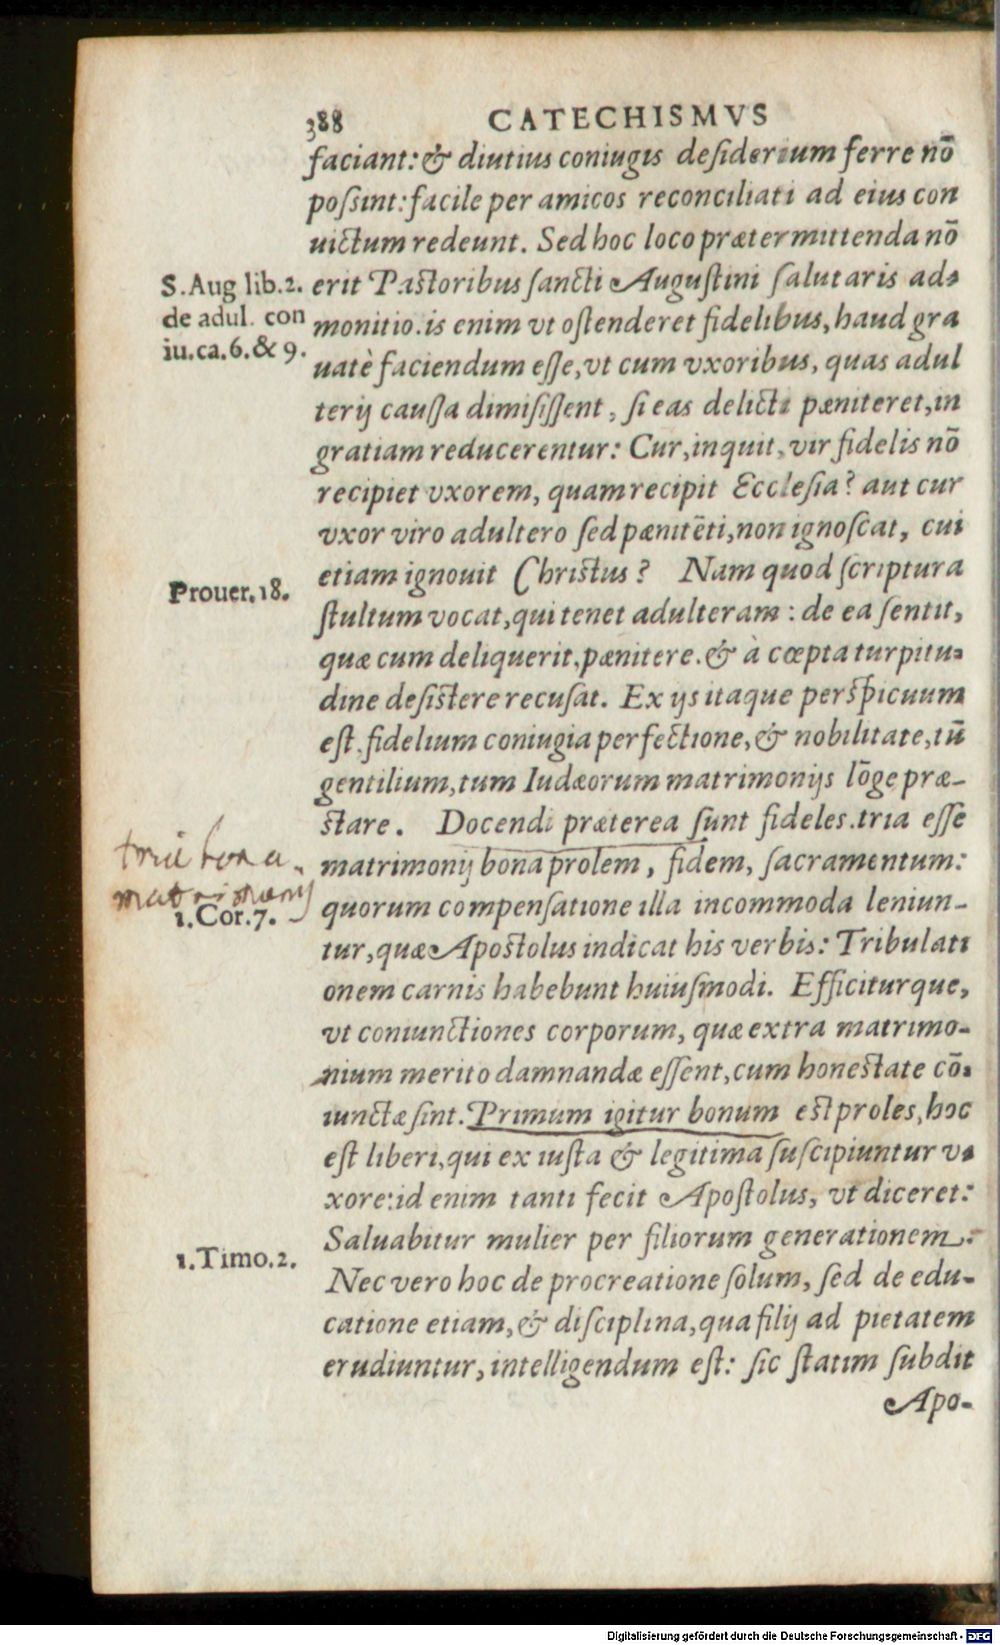 388 CATECHISMVS
faciant: & diutius coniugis desiderium ferre nõ
possint: facile per amicos reconciliati ad eius con
uictum redeunt. Sed hoc loco prætermittenda nõ
S. Aug lib. 2.
de adul. con
iu. ca. 6. & 9.
erit Pastoribus sancti Augustini salutaris ad-
monitio. is enim vt ostenderet fidelibus, haud gra
uatè faciendum esse, vt cum vxoribus, quas adul
terij caussa dimisissent, si eas delicti pæniteret, in
gratiam reducerentur: Cur, inquit, vir fidelis nõ
recipiet vxorem, quam recipit Ecclesia? aut cur
vxor viro adultero sed pænitẽti, non ignoscat, cui
etiam ignouit Christus? Nam quod scriptura
Prouer. 18.
stultum vocat, qui tenet adulteram: de ea sentit,
quæ cum deliquerit, pænitere. & à cœpta turpitu-
dine desistere recusat. Ex ijs itaque perspicuum
est. fidelium coniugia perfectione, & nobilitate, tũ
gentilium, tum Iudæorum matrimonijs lõge præ-
stare. Docendi præterea sunt fideles. tria esse
tria bona
matrimonij
matrimonij bona prolem, fidem, sacramentum:
1. Cor. 7.
quorum compensatione illa incommoda leniun-
tur, quæ Apostolus indicat his verbis: Tribulati
onem carnis habebunt huiusmodi. Efficiturque,
vt coniunctiones corporum, quæ extra matrimo-
nium merito damnandæ essent, cum honestate cõ-
iunctæ sint. Primum igitur bonum est proles, hoc
est liberi, qui ex iusta & legitima suscipiuntur v-
xore: id enim tanti fecit Apostolus, vt diceret:
Saluabitur mulier per filiorum generationem.
1. Timo. 2.
Nec vero hoc de procreatione solum, sed de edu-
catione etiam, & disciplina, qua filij ad pietatem
erudiuntur, intelligendum est: sic statim subdit
Apo-
Digitalisierung gefördert durch die Deutsche Forschungsgemeinschaft - DFG